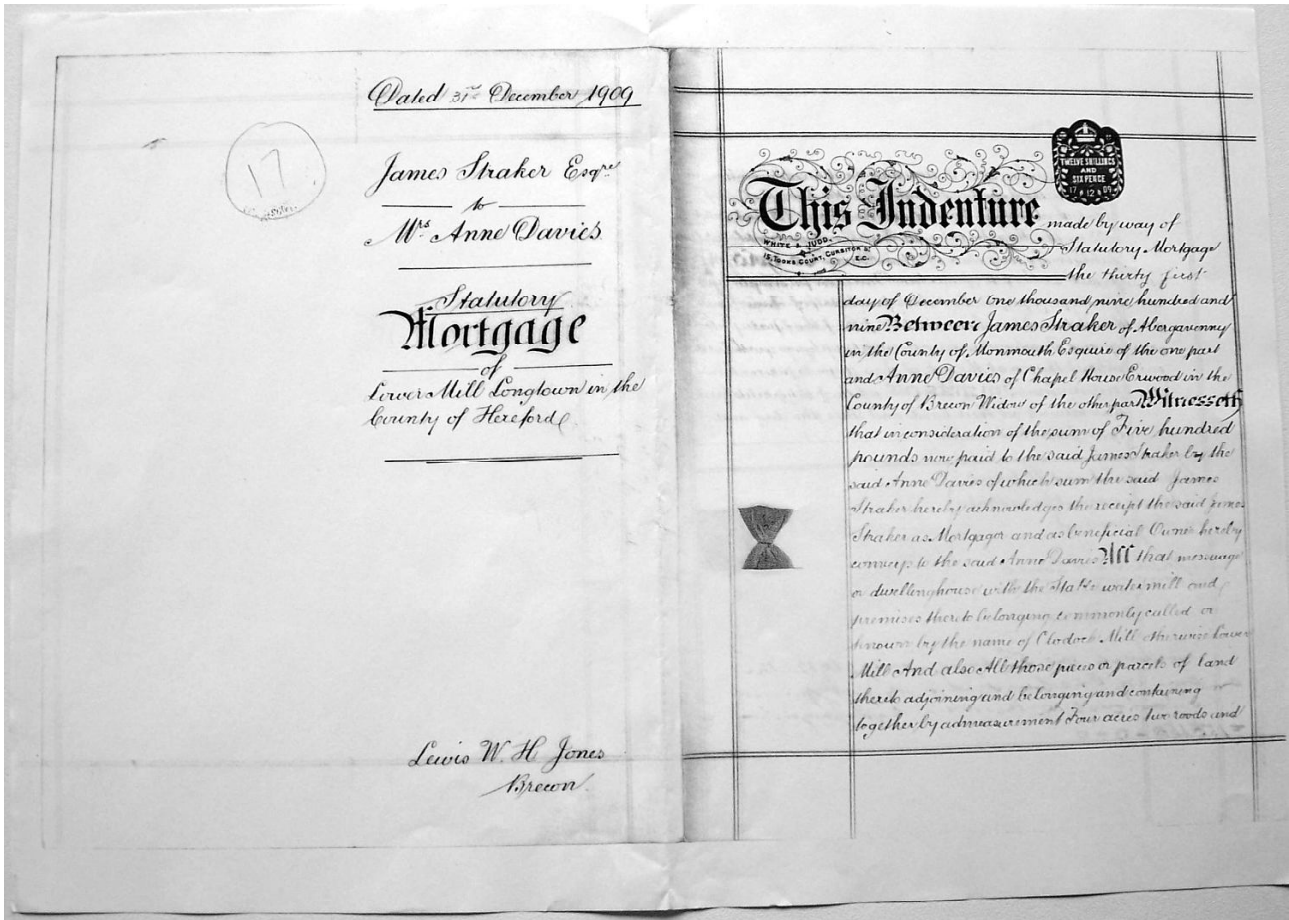 Dated 31st December 1909
17.
James Straker Esqre
to
Mrs Anne Davies
Statutory
Mortgage
of
Lower Mill Longtown in the
County of Hereford
Lewis W. H Jones
Brecon.
TWELVE SHILLINGS
AND
SIX PENCE
17 12 09
This Indenture made by way of
WHITE & JUDD.
15, TOOKS COURT, CURSITOR St
E.C.
Statutory Mortgage
the thirty first
day of December one thousand nine hundred and
nine Between James Straker of Abergavenny
in the County of Monmouth Esquire of the one part
and Anne Davies of Chapel House Erwood in the
County of Brecon Widow of the other part Witnesseth
that in consideration of the sum of Five hundred
pounds now paid to the said James Straker by the
said Anne Davies of which sum the said James
Straker hereby acknowledges the receipt the said James
Straker as Mortgagor and as beneficial Owner hereby
conveys to the said Anne Davies All that messuage
or dwellinghouse with the water mill and
premises thereto belonging commonly called or
known by the name of Clodock Mill otherwise Lower
Mill And also All those pieces or parcels of land
thereto adjoining and belonging and containing
together by admeasurement Four acres two roods and